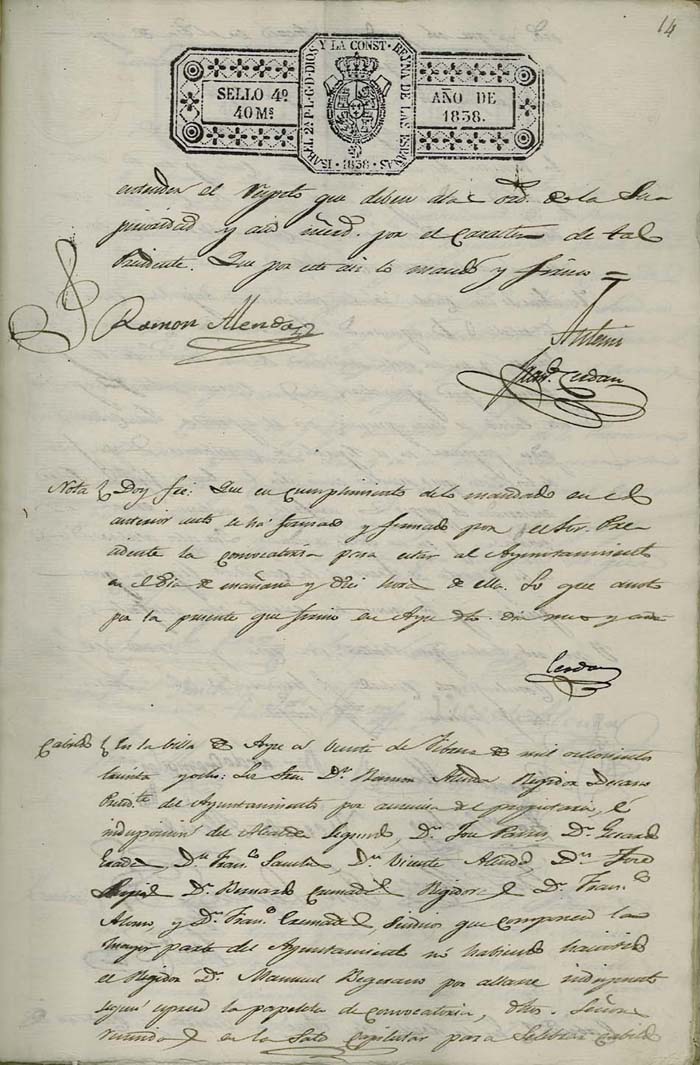 14
ISABEL 2ª P. L. G. D. DIOS Y LA CONST. REYNA DE LAS ESPAÑAS
· 1838 ·
SELLO 4º
40 Mˢ
AÑO DE
1838.
el respeto que deben a la de la Su-
perioridad y por el Caracter de tal
Presidente. Que por este así lo mandó y firmó =
Ramon Alenda
Antemi
Cerdan
Nota Doy fée: Que en cumplimiento de lo mandado en el
anterior auto se há formado y firmado por el Sor. Pre-
sidente la convocatoria para citar al Ayuntamiento
en el dia de mañana y diez hora de ella. Lo que anoto
por la presente que firmo en Aspe dho. dia mes y año
Cerdan
Cabildo En la Villa de Aspe a Veinte de de mil ochocientos
treinta y ocho: Los Sres. Dn. Ramon Alenda Regidor Decano
Presidte. del Ayuntamiento por ausencia del propietario, é
indisposicion del Alcalde Segundo, Dn. Jose Dn. Gerardo
Dn. Franco. Sanchez, Dn. Vicente Dn. José
Dn. Bernardo Cremades Regidores Dn. Franco.
Alonso y Dn. Franco. Cremades Sindicos que componen la
mayor parte del Ayuntamiento no habiendo
el Regidor Dn. Manuel Begerano por allarse indispuesto
segun la papeleta de convocatoria, dhos. Señores
reunidos en la Sala Capitular para Selebrar Cabildo